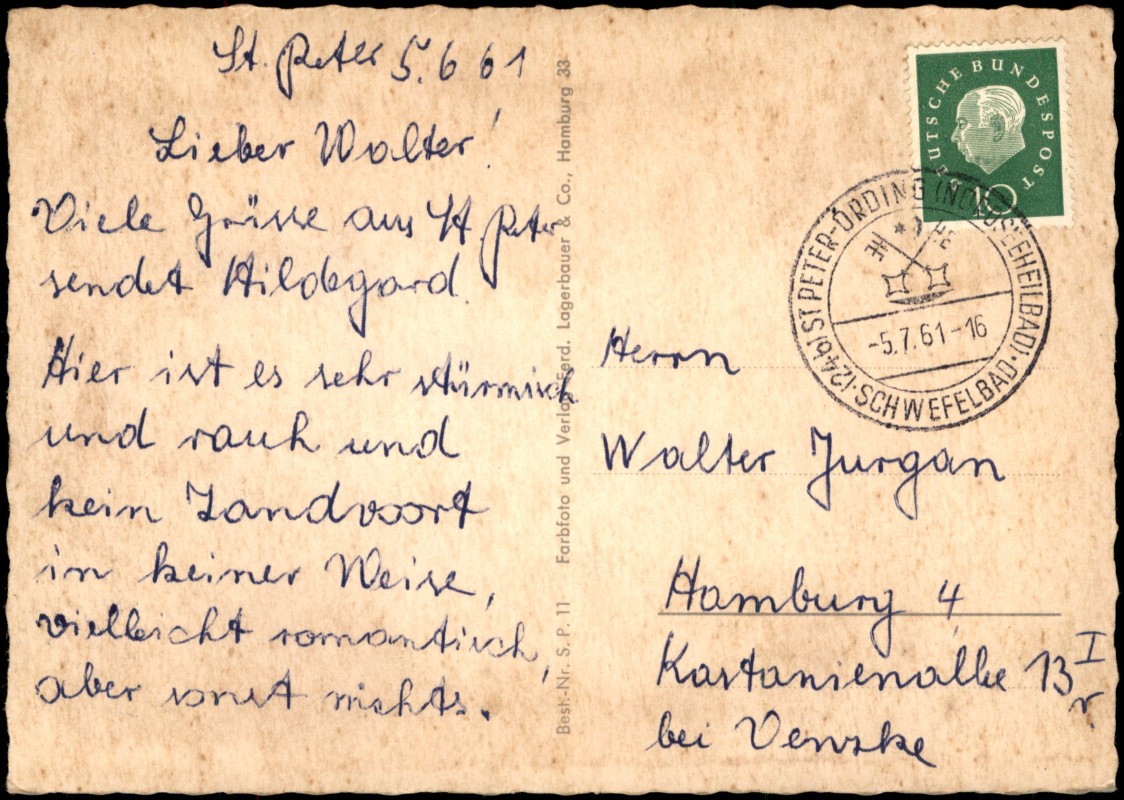 St. Peter 5.6 61
Lieber Walter!
Viele Grüsse aus St. Peter
sendet Hildegard.
Hier ist es sehr stürmisch
und rauh und
kein Zandvoort
in keiner Weise,
vielleicht romantisch,
aber sonst nichts.
Best.-Nr. S. P. 11 Farbfoto und Verlag Ferd. Lagerbauer & Co., Hamburg 33
DEUTSCHE BUNDESPOST
10
(24b) ST PETER-ORDING (NORDSEEHEILBAD)
SCHWEFELBAD
-5.7.61-16
Herrn
Walter Jurgan
Hamburg 4
Kastanienallee 13 I
r.
bei Venske